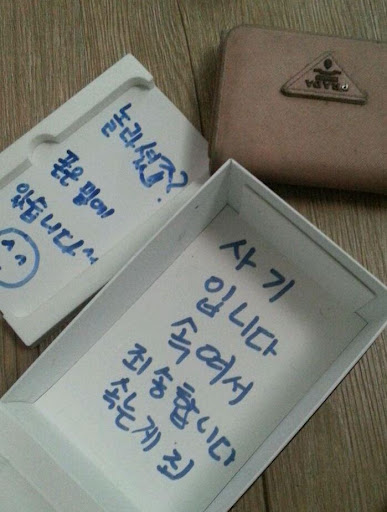 놀라셨죠?
폰은 밑에
있습니다~
사기
입니다
속여서
죄송합니다
속는게 죄